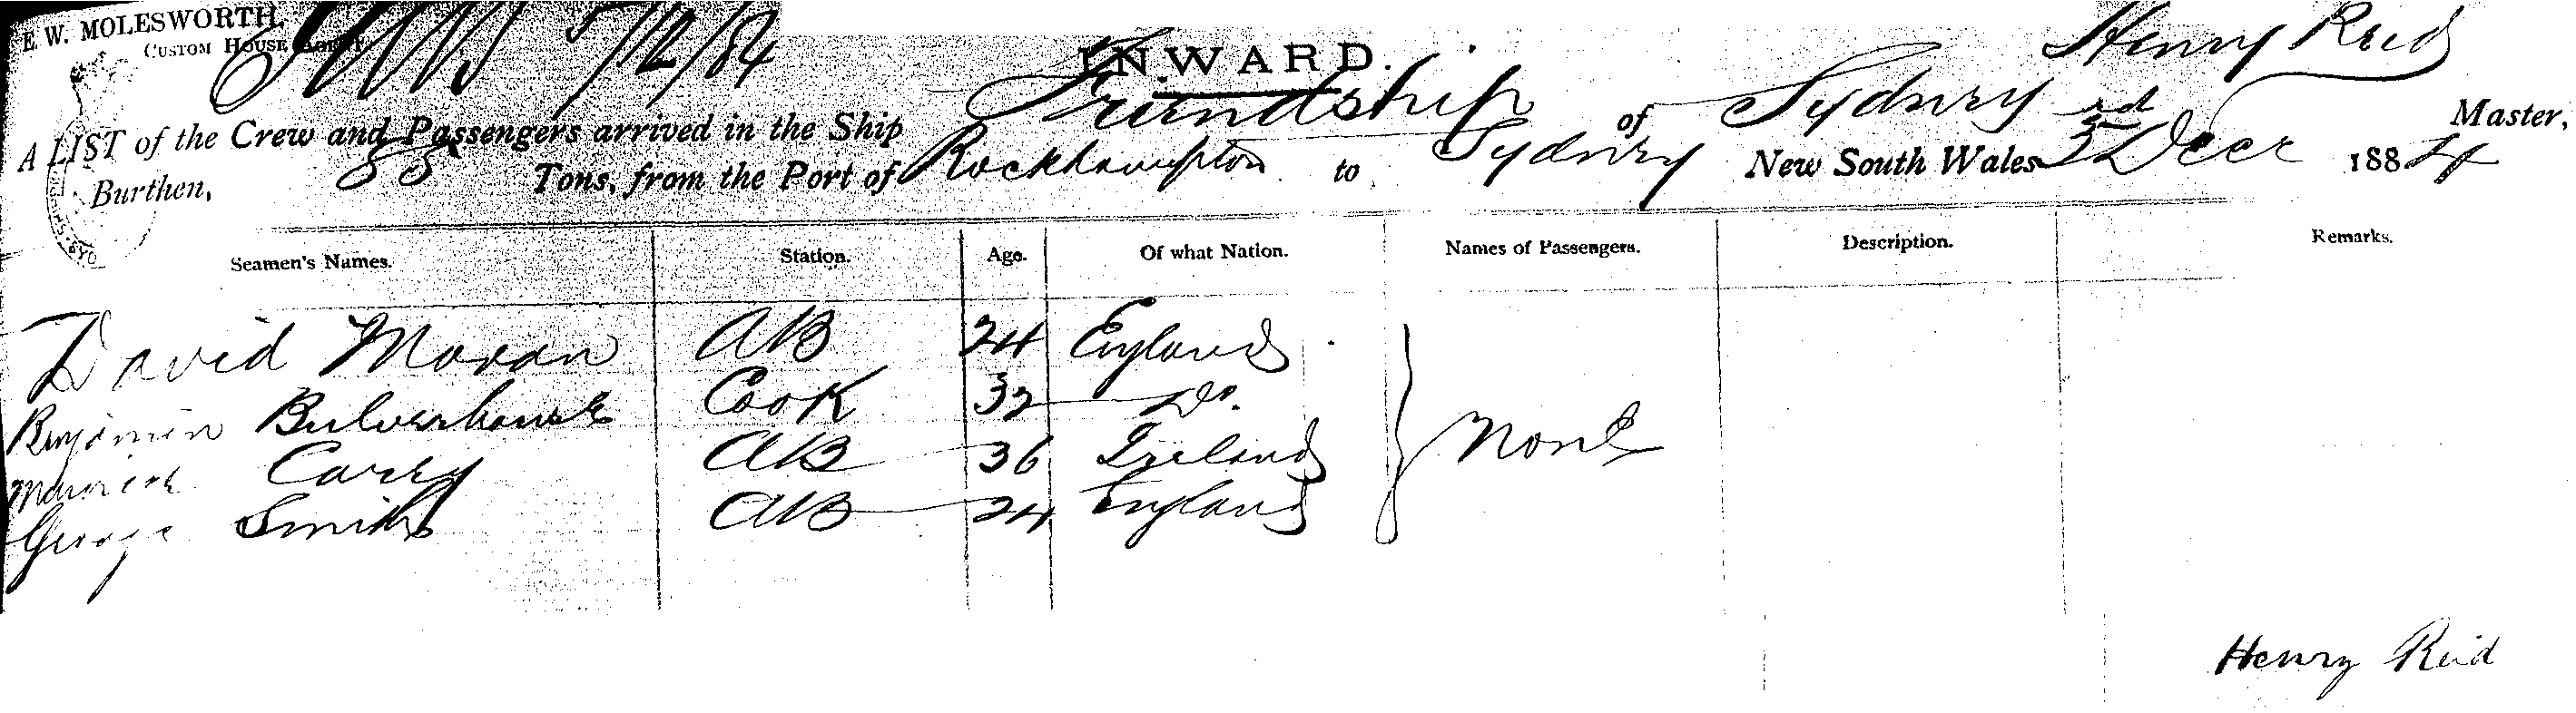 E. W. MOLESWORTH,
CUSTOM HOUSE AGENT
5/12/84
INWARD.
A LIST of the Crew and Passengers arrived in the Ship Friendship of Sydney Henry Reid Master,
Burthen, 88 Tons, from the Port of Rockhampton to Sydney New South Wales 3rd Decr 1884
Seamen's Names. Station. Age. Of what Nation. Names of Passengers. Description. Remarks.
David Moran AB 24 England
Benjamin Bulverhouse Cook 32 Do.
Maurice Carey AB 36 Ireland None
George Smith AB 24 England
Henry Reid